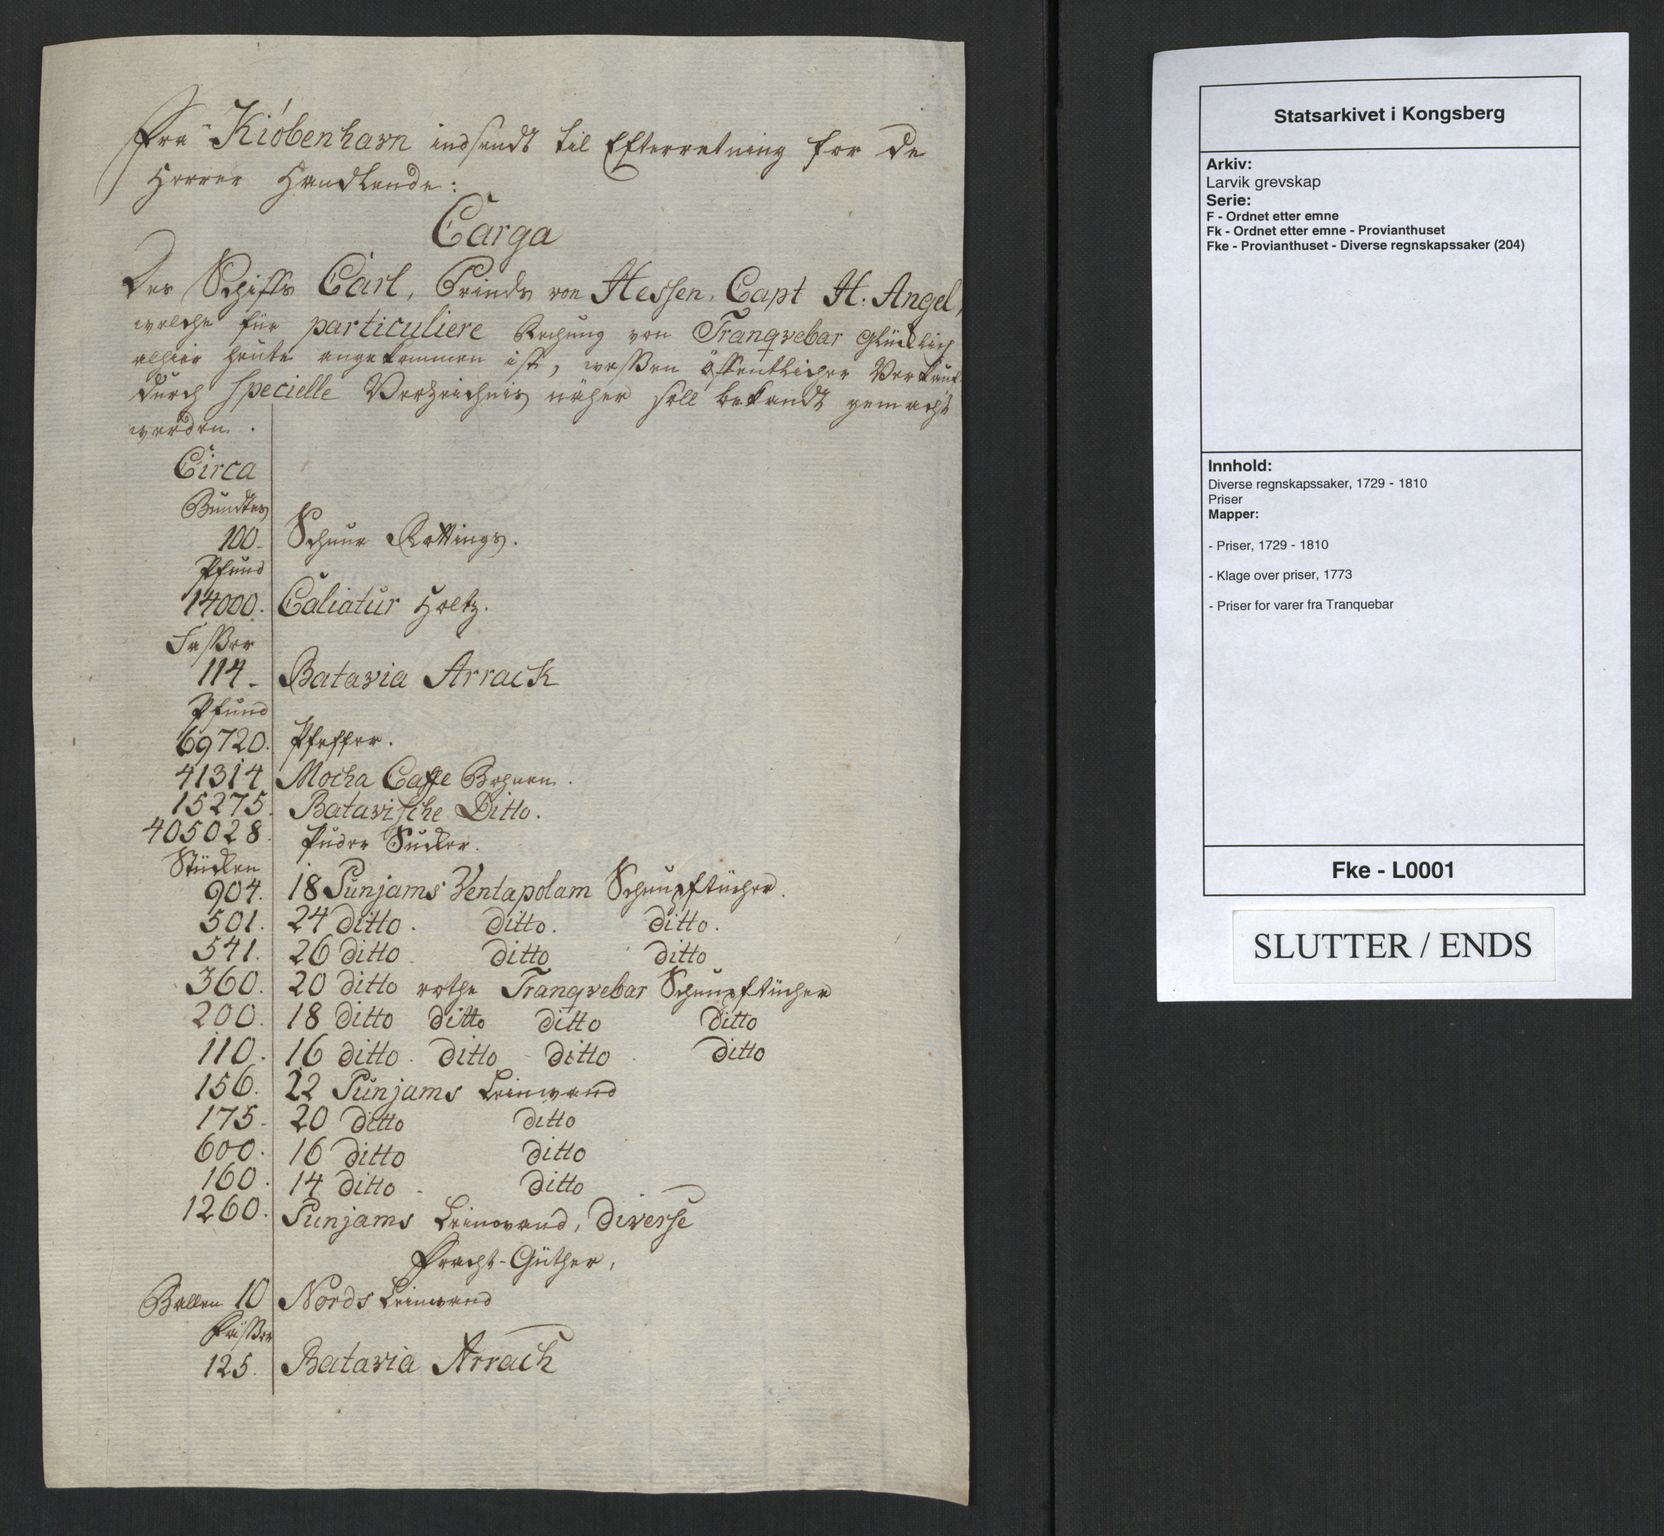 Fra Kiöbenhavn indsendt til Efterretning for de
Herrer Handlende:
Carga
Des Schiffs Carl, Prinds von Hessen, Capt H. Angel,
welche für particuliere Rechung von Tranqvebar Glücklich
alhier heute angekommen ist, weßen öffentlicher Verkauf
durch specielle Verzeichnis näher soll bekandt gemacht
werden.
Circa
Bundtes
100. Schnur Rottings.
Pfund
14000. Caliatur Holtz.
Faßer
114. Batavia Arrack
Pfund
69720. Pfeffer.
41314 Mocha Caffe Bohnen.
15275. Batavische Ditto.
405028. Puder Sucker.
Stücken
904. 18 Punjams Ventapolam Schnupftücher.
501. 24 ditto. ditto. ditto.
541. 26 ditto. ditto ditto
360. 20 ditto rothe Tranqvebar Schnupftücher
200. 18 ditto ditto ditto ditto
110. 16 ditto. ditto ditto. ditto
156. 22 Punjams Leinwand
175. 20 ditto ditto
600. 16 ditto ditto
160. 14 ditto ditto
1260. Punjams Leinwand, Diverse
Fracht-Güther,
Ballen 10 Nords Leinwand
Fäßer
125. Batavia Arrack
Statsarkivet i Kongsberg
Arkiv:
Larvik grevskap
Serie:
F - Ordnet etter emne
Fk - Ordnet etter emne - Provianthuset
Fke - Provianthuset - Diverse regnskapssaker (204)
Innhold:
Diverse regnskapssaker, 1729 - 1810
Priser
Mapper:
- Priser, 1729 - 1810
- Klage over priser, 1773
- Priser for varer fra Tranquebar
Fke - L0001
SLUTTER / ENDS